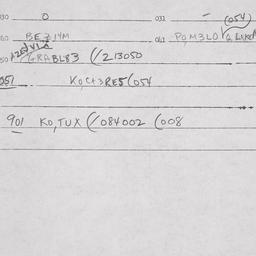 030 0 031 - (054)
060 BEZ14M 061 POM3LO
050 GRABL83 (/213050
051 KOCT3RE5(054
901 KO,TUX (/084002 (008